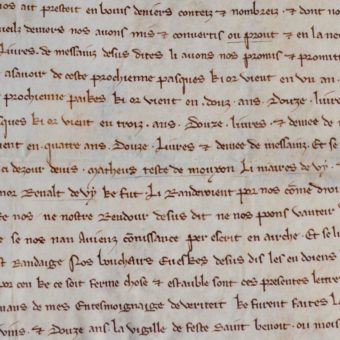 nos ait presteit en bouis deniers conteiz & nombreiz · & dont no
ueilz deniers nos auons mis & conuertis ou prout & en la ne
Liures · de messainz desus dites li auons nos promis & promit
· asauoir de ceste prochienne pasques ki or uient en vn an ·
prochienne paikes ki or uient en · douz · ans · Douze · liure
sques ki or uient en troiz · ans · Douze · liures · & demee de m
uient en · quatre ans · Douze · Liures & demee de messainz · Et se
ci dezour deuis · Matheus teste de mouxon Li maires de vy · &
nor Renalt de vy ke fut · Li Randroient por nos come droi
ke nos · ne nostre Rendour desus dit · ne nos pons vanteir
se nos nan Auienz comissance per escrit en airche · Et se li
st Randaige · Nos bouchars Eueskes desus dis les en doiens
por ceu ke ce soit ferme chose & estauble sont ces presentes lettre
uans de mes Entesmoignaige de ueriteit · ke furent faites L
vins · & Douze ans la vigille de feste saint benoit · ou mois